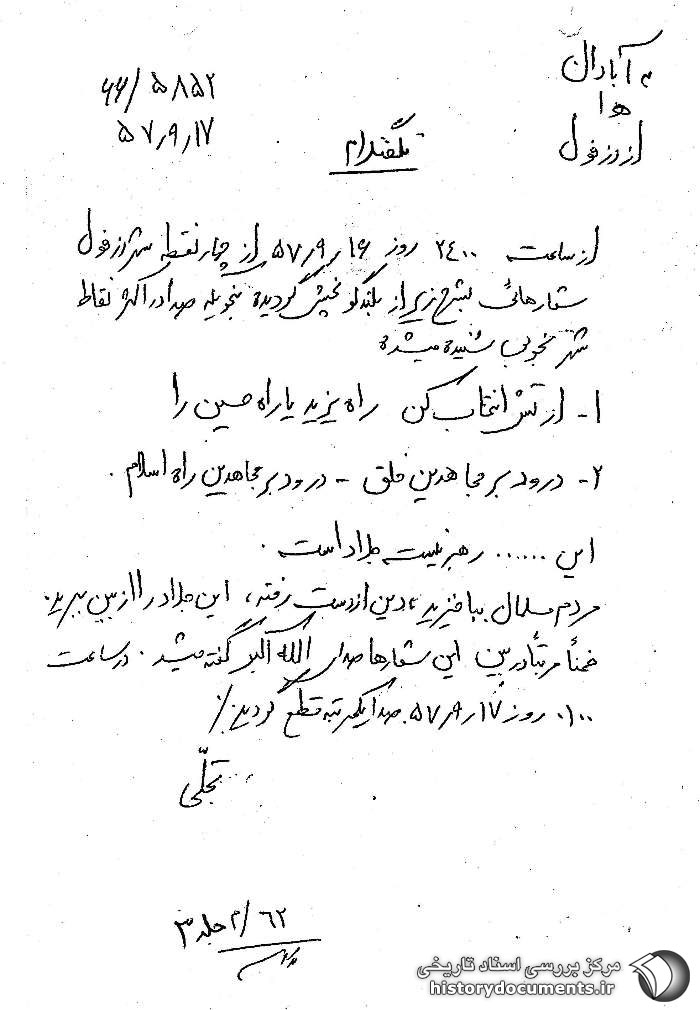 به آبادان
ه‍ ۱
از دزفول
۶۶/۵۸۵۲
۵۷٫۹٫۱۷
تلفنگرام
از ساعت ۲۴۰۰ روز ۵۷٫۹٫۱۶ از چهار نقطه شهر دزفول
شعارهائی بشرح زیر از بلندگو پخش گردیده بنحویکه صدا در اکثر نقاط
شهر بخوبی شنیده میشده
۱- ارتش انتخاب کن راه یزید یا راه حسین را
۲- درود بر مجاهدین خلق - درود بر مجاهدین راه اسلام .
این ...... رهبر نیست جلاد است .
مردم مسلمان بپاخیزید، دین از دست رفته، این جلاد را از بین ببرید.
ضمناً مرتباً در بین این شعارها صدای الله اکبر گفته میشد . در ساعت
۰۱۰۰ روز ۵۷٫۹٫۱۷ صدا یکمرتبه قطع گردید /
تجلّی
۶۲/م جلد ۳
مرکز بررسی اسناد تاریخی
historydocuments.ir